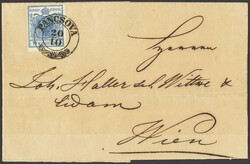 PANCSOVA
20
10
Herren
Joh. Haller sel. Wittwe &
Eidam
Wien